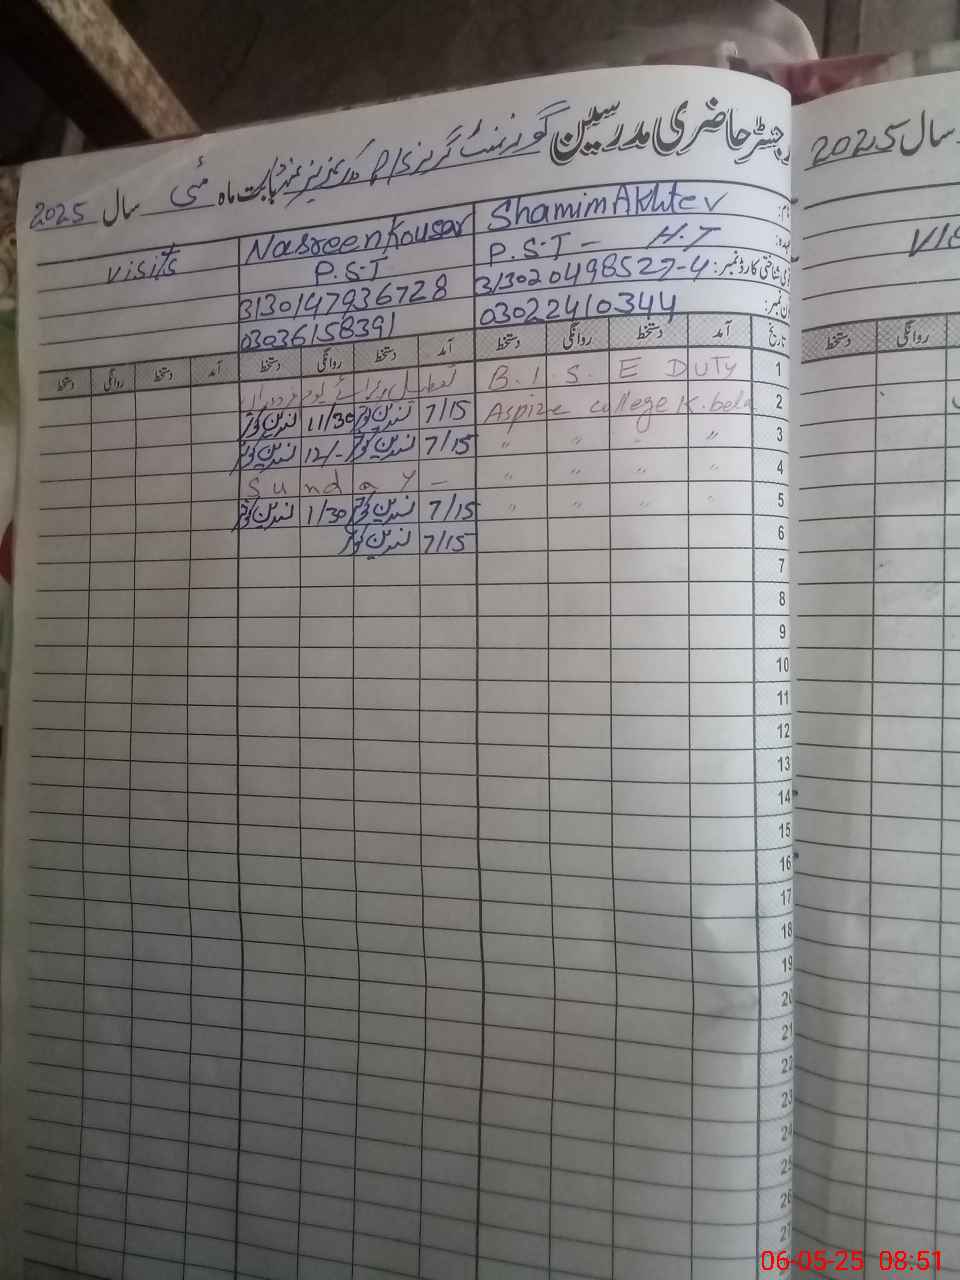 رجسٹر حاضری مدرسین گورنمنٹ گرلز بابت ماہ مئی سال 2025
Shamim Akhter Nasreen Kousar visits
P.S.T - H.T P.S.T
شناختی کارڈ نمبر: 313020498527-4 3130147936728
03022410344 03036158391
تاریخ آمد دستخط روانگی دستخط آمد دستخط روانگی دستخط آمد دستخط روانگی دستخط
1 B.I.S.E DUTY تعطیل
2 Aspire college K.bela 7/15 نسرین کوثر 11/30 نسرین کوثر
3 " " " " 7/15 نسرین کوثر 12/- نسرین کوثر
4 " " " " Sunday -
5 " " " " 7/15 نسرین کوثر 1/30 نسرین کوثر
6 7/15 نسرین کوثر
7
8
9
10
11
12
13
14
15
16
17
18
19
20
21
22
23
24
25
26
27
سال 2025
روانگی دستخط
06-05-25 08:51